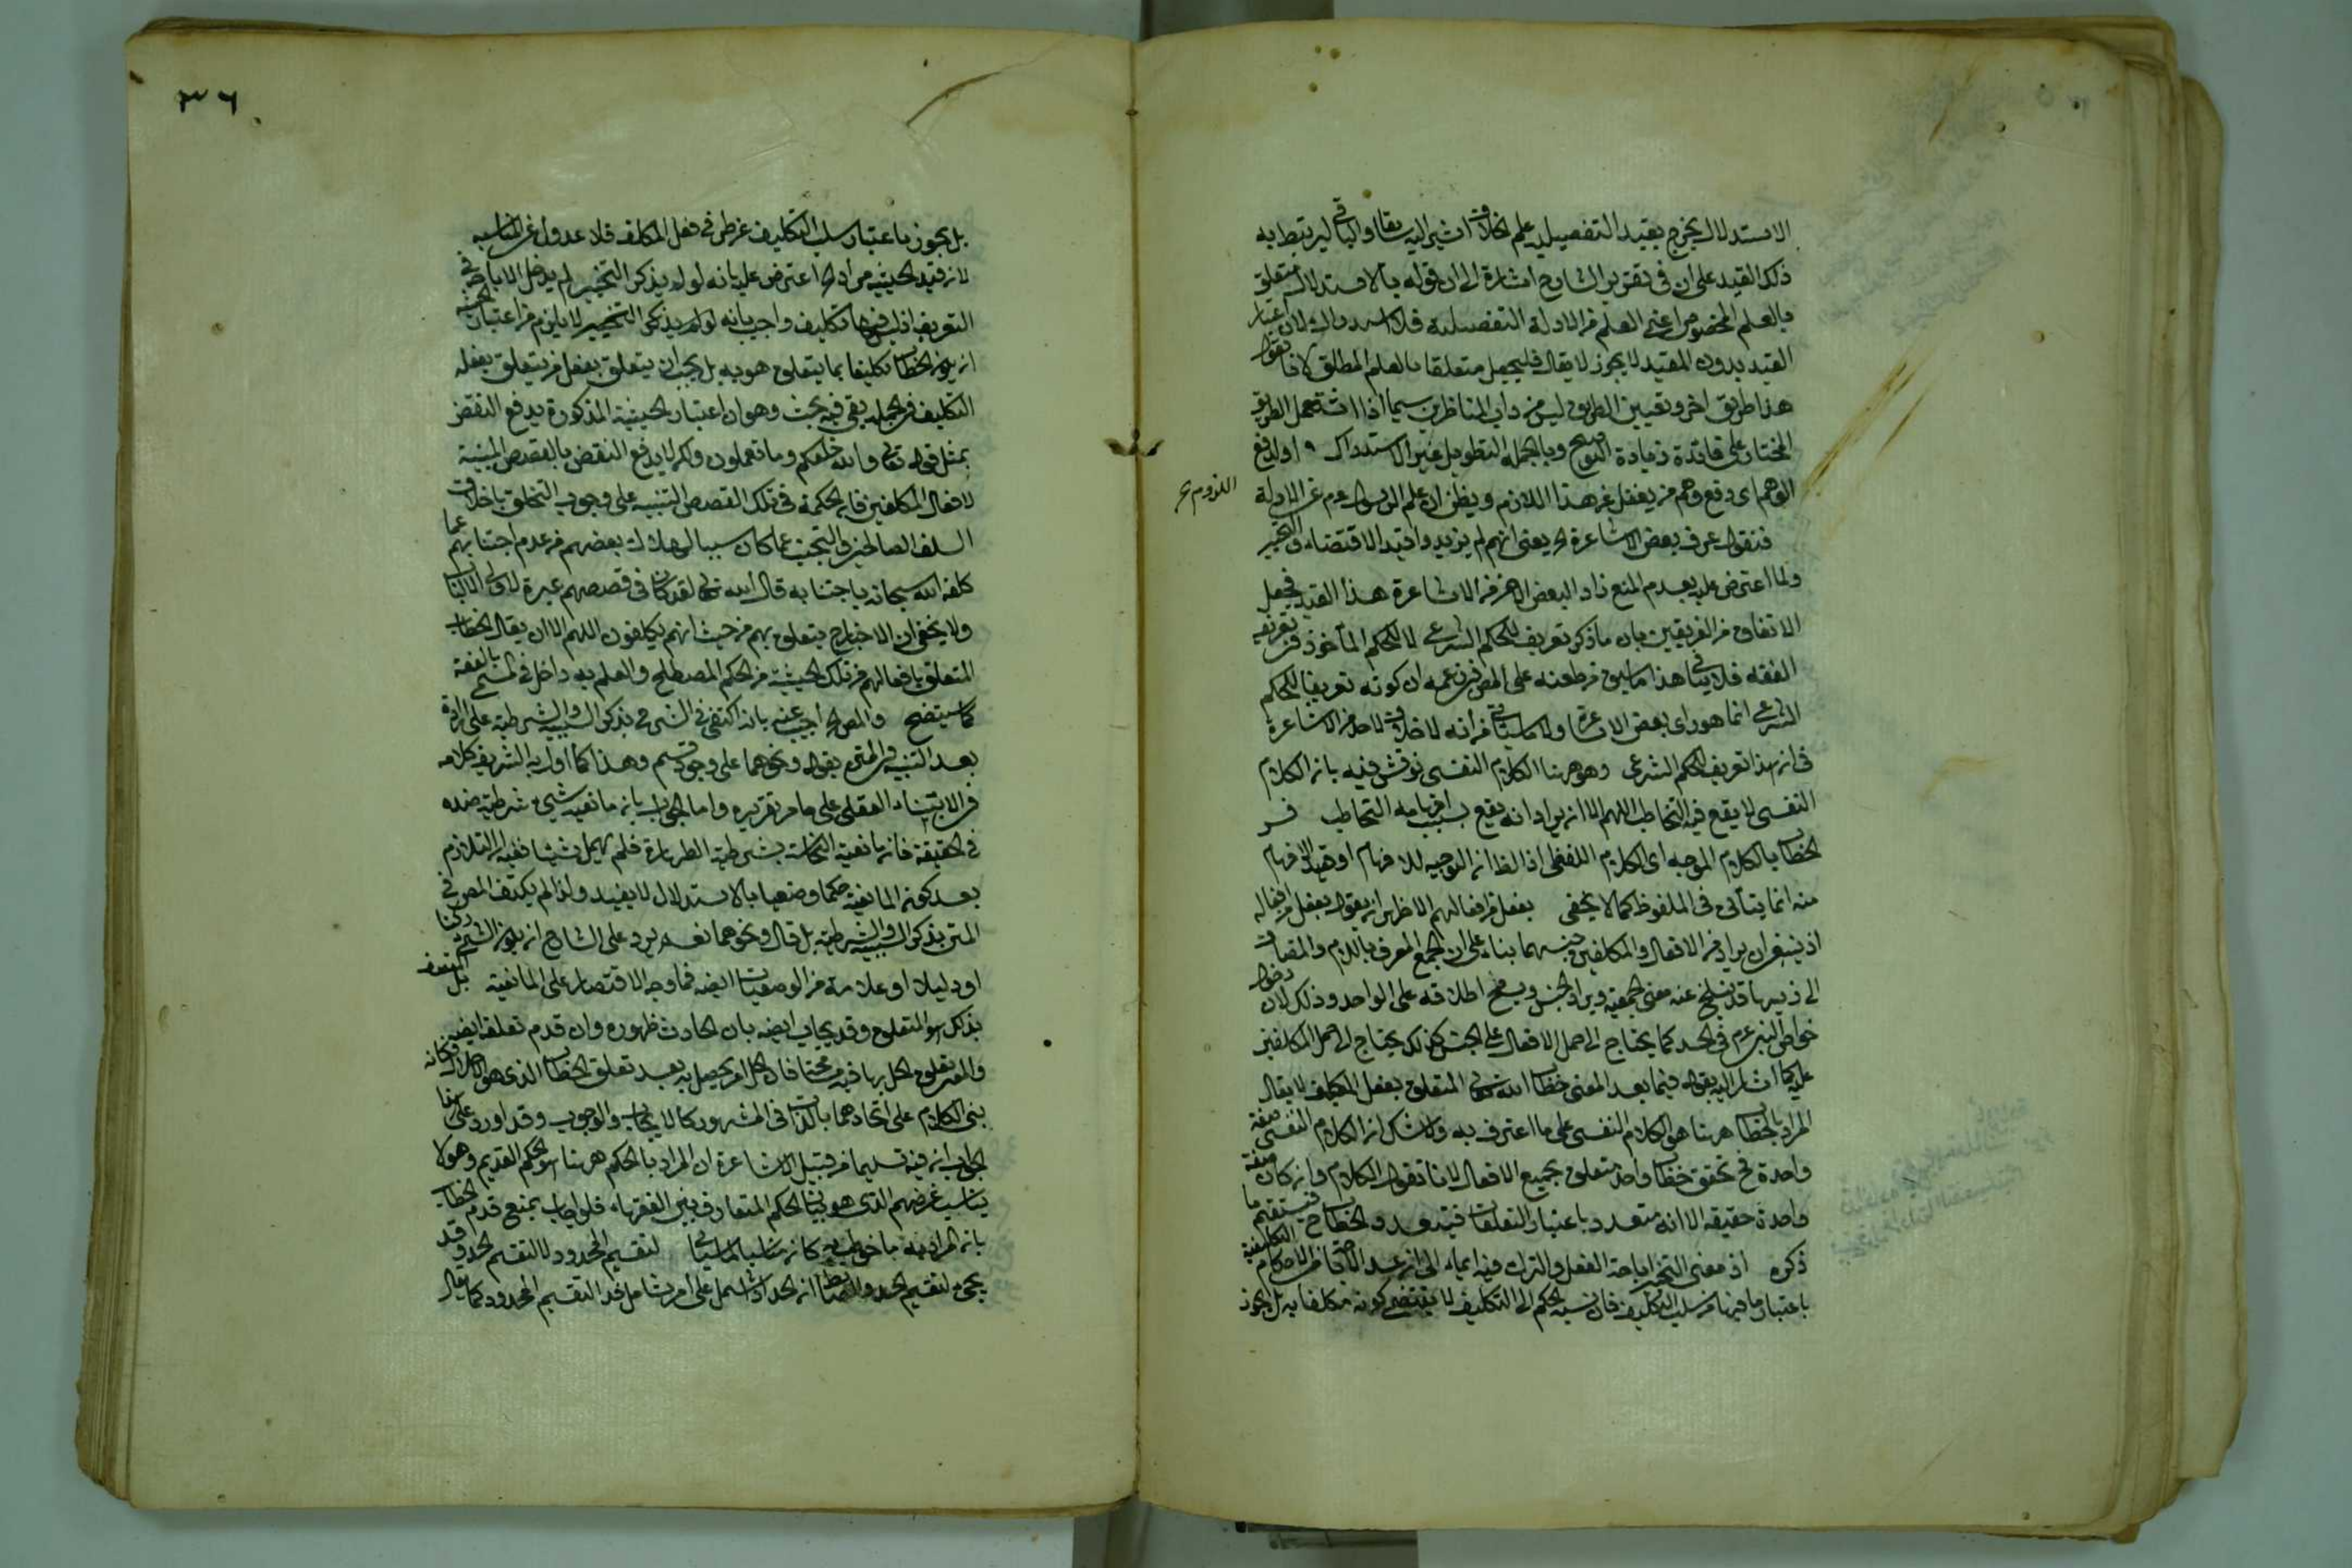 الاستدلال يخرج بقيد التفصيلية علم الخلاف اشير اليه سابقا والباقي ليرتبط به
ذلك القيد على ان في تقرير الشارح اشارة الى ان قوله بالاستدلال متعلق
بالعلم المخصوص اعني العلم من الادلة التفصيلية فلا لان اعتبار
القيد بدون المقيد لا يجوز لا يقال فليجعل متعلقا بالعلم المطلق لانا نقول
هذا طريق اخر وتعيين الطريق ليس من داب المناظرين سيما اذا اشتمل الطريق
المختار على فائدة زيادة التوضيح وبالجملة التطويل غير الاستدراك او لدفع
الوهم اى دفع وهم من يغفل عن هذا اللازم ويظن ان علم الرسول عم عن الادلة
اللزوم
فنقول عرف بعض الاشاعرة الخ يعنى انهم لم يزيدوا قيد الاقتضاء والتخيير
ولما اعترض عليه بعدم المنع زاد البعض الاخر من الاشاعرة هذا القيد فجعل
الاتفاق من الفريقين بان ما ذكر تعريف للحكم الشرعى لا للحكم المأخوذ في تعريف
الفقه فلا ينافي هذا ما سبق من طعنه على المص في زعمه ان كونه تعريفا للحكم
الشرعى انما هو راى بعض الاشاعرة ولا ما سياتي من أنه لا خلاف لاحد من الاشاعرة
فى ان هذا تعريف للحكم الشرعى وهو ههنا الكلام النفسى نوقش فيه بان الكلام
النفسى لا يقع فيه التخاطب اللهم الا ان يراد انه يقع بسبب افهامه التخاطب فسر
الخطاب بالكلام الموجه اى الكلام اللفظى اذ الظ ان التوجيه للافهام او قصد الافهام
منه انما يتأتى فى الملفوظ كما لا يخفى بفعل من افعالهم الاظهر ان يقول بفعل من افعاله
اذ ينبغى ان يراد من الافعال والمكلفين جنسهما بناء على ان الجمع المعرف باللام والمضاف
الى ذيها قد ينسلخ عنه معنى الجمعية ويراد الجنس ويصح اطلاقه على الواحد وذلك لان دخول
خواص النبى عم فى الحد كما يحتاج الى حمل الافعال على الجنس كذلك يحتاج الى حمل المكلفين
عليه كما اشار اليه بقوله فيما بعد المعنى خطاب الله تعالى المتعلق بفعل المكلف لا يقال
المراد بالخطاب ههنا هو الكلام النفسى على ما اعترف به ولا شك ان الكلام النفسى صفة
واحدة فح تحقق خطاب واحد متعلق بجميع الافعال لانا نقول الكلام وان كان صفة
واحدة حقيقة الا انه متعدد باعتبار التعلقات فيتعدد الخطاب ح فيستقيم ما
ذكره اذ معنى التخيير اباحة الفعل والترك فيه ايماء الى ان عد الاباحة من الاحكام التكليفية
باعتبار ما فيها من سلب التكليف فان نسبة الحكم الى التكليف لا يقتضى كونه مكلفا به بل يجوز
٣٦
بل يجوز باعتبار سلب التكليف عن طرفي فعل المكلف فلا عدول عن المناسبه
لان قيد الحيثية مراد الخ اعترض عليه بانه لو لم يذكر التخيير لم يدخل الاباحة في
التعريف اذ ليس فيها تكليف واجيب بانه لو لم يذكر التخيير لا يلزم من اعتبار الحيثية
ان يكون الخطاب تكليفا بما يتعلق هو به بل يجب ان يتعلق بفعل من يتعلق بفعله
التكليف في الجملة بقى فيه بحث وهو ان اعتبار الحيثية المذكورة يدفع النقض
بمثل قوله تعالى والله خلقكم وما تعملون ولكن لا يدفع النقض بالقصص المبينة
لافعال المكلفين فان الحكمة في تلك القصص التنبيه على وجوب التخلق باخلاق
السلف الصالحين والتجنب عما كان سببا لهلاك بعضهم من عدم اجتنابهم عما
كلفه الله سبحانه باجتنابه قال الله تعالى لقد كان فى قصصهم عبرة لاولى الالباب
ولا يخفى ان الاخبار ح يتعلق بهم من حيث انهم يكلفون اللهم الا ان يقال الخطاب
المتعلق بافعالهم من تلك الحيثية من الحكم المصطلح والعلم به داخل في المسمى بالفقه
كما سيتضح والمص الخ أجيب عنه بانه اكتفى في الشرح بذكر السببية والشرطية على ارادة
بعد التنبيه في المتن بقوله ونحوهما على وجود قسم وهذا كما اول به الشريف كلامه
فى الابتناء العقلى على ما مر تقريره واما الجواب بان مانعية شيء شرطية ضده
فى الحقيقة فان مانعية النجاسة بشرطية الطهارة فلم يهمل شيئا ففيه ان التلازم
بعد كون المانعية حكما وضعيا بالاستدلال لا يفيد ولذا لم يكتف المص فى
المتن بذكر السببية والشرطية بل قال ونحوهما نعم يرد على الشارح ان يكون الشيء ركنا
او دليلا او علامة من الوضعيات ايضه فما وجه الاقتصار على المانعية بل المتصف
بذلك هو المتعلق وقد يجاب ايضه بان الحادث ظهوره وان قدم تعلقه ايضه
بنى الكلام على اتحادهما بالذات فى المشهور كالايجاب والوجوب وقد اورد على هذا
الجواب ان فيه تسليما من قبيل الاشاعرة ان المراد بالحكم ههنا هو الحكم القديم وهو لا
يناسب غرضهم الذى هو بيان الحكم المتعارف بين الفقهاء فلو اجاب بمنع قدم الخطاب
بان المراد به ما خوطب به كان مناسبا لما سياتى لتقسيم المحدود لا لتقسيم الحد وقد
يجىء لتقسيم الحد والضابط ان الحد اذا اشتمل على امر شامل فذا التقسيم المحدود كما يقال